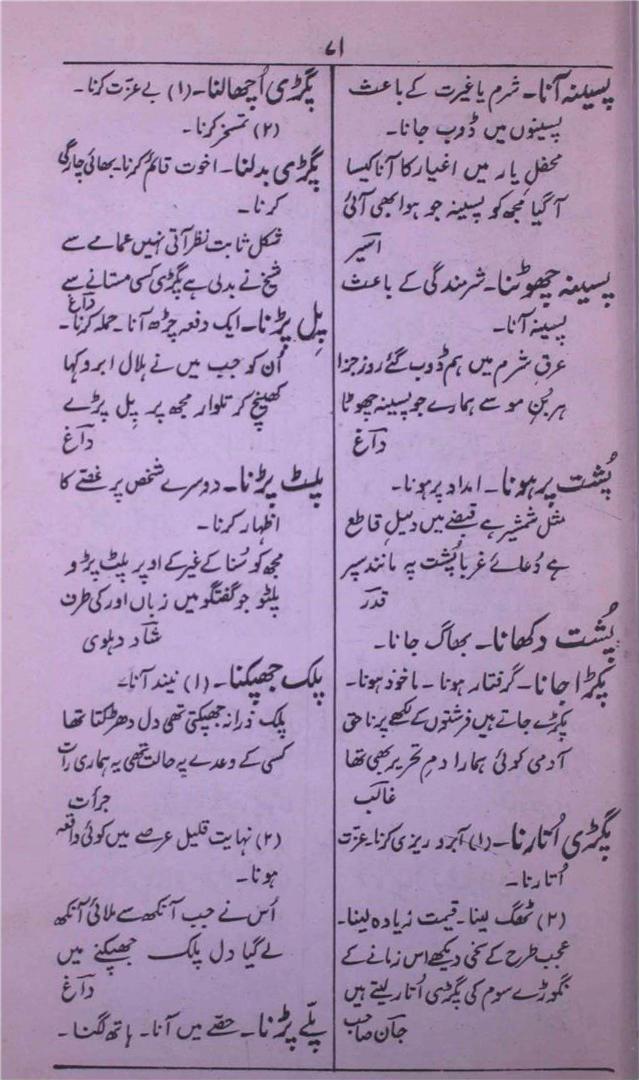 ۷۱
پسینہ آنا۔ شرم یا غیرت کے باعث
پسینوں میں ڈوب جانا۔
محفلِ یار میں اغیار کا آنا کیسا
آگیا مجھ کو پسینہ جو ہوا بھی آئی
اسیر
پسینہ چھوٹنا۔ شرمندگی کے باعث
پسینہ آنا۔
عرقِ شرم میں ہم ڈوب گئے روزِ جزا
ہر بُنِ مو سے ہمارے جو پسینہ چھوٹا
داغ
پُشت پر ہونا۔ امداد پر ہونا۔
مثل شمشیر ہے قبضے میں دلیلِ قاطع
ہے دُعائے غربا پُشت پہ مانندِ سپر
قدر
پُشت دکھانا۔ بھاگ جانا۔
پکڑا جانا۔ گرفتار ہونا۔ ماخوذ ہونا۔
پکڑے جاتے ہیں فرشتوں کے لکھے پر ناحق
آدمی کوئی ہمارا دمِ تحریر بھی تھا
غالب
پگڑی اُتارنا۔ (۱) آبرو ریزی کرنا۔ عزت
اُتارنا۔
(۲) ٹھگ لینا۔ قیمت زیادہ لینا۔
عجب طرح کے سخی دیکھے اس زمانے کے
نگوڑے سوم کی پگڑی اُتار لیتے ہیں
جان صاحب
پگڑی اُچھالنا۔ (۱) بے عزت کرنا۔
(۲) تمسخر کرنا۔
پگڑی بدلنا۔ اخوت قائم کرنا۔ بھائی چارگی
کرنا۔
شکل ثابت نظر آتی نہیں عمامے سے
شیخ نے بدلی ہے پگڑی کسی مستانے سے
داغ
پِل پڑنا۔ ایک دفعہ چڑھ آنا۔ حملہ کرنا۔
اُن کو جب میں نے ہلال ابرو کہا
کھینچ کر تلوار مجھ پر پِل پڑے
داغ
پلٹ پڑنا۔ دوسرے شخص پر غصّے کا
اظہار کرنا۔
مجھ کو سُنا کے غیر کے اوپر پلٹ پڑو
پلٹو جو گفتگو میں زباں اور کی طرف
شاد دہلوی
پلک جھپکنا۔ (۱) نیند آنا۔
پلک ذرا نہ جھپکتی تھی دل دھڑکتا تھا
کسی کے وعدے پہ حالت تھی یہ ہماری رات
جرأت
(۲) نہایت قلیل عرصے میں کوئی واقعہ
ہونا۔
اُس نے جب آنکھ سے ملائی آنکھ
لے گیا دل پلک جھپکنے میں
داغ
پلّے پڑنا۔ حصّے میں آنا۔ ہاتھ لگنا۔